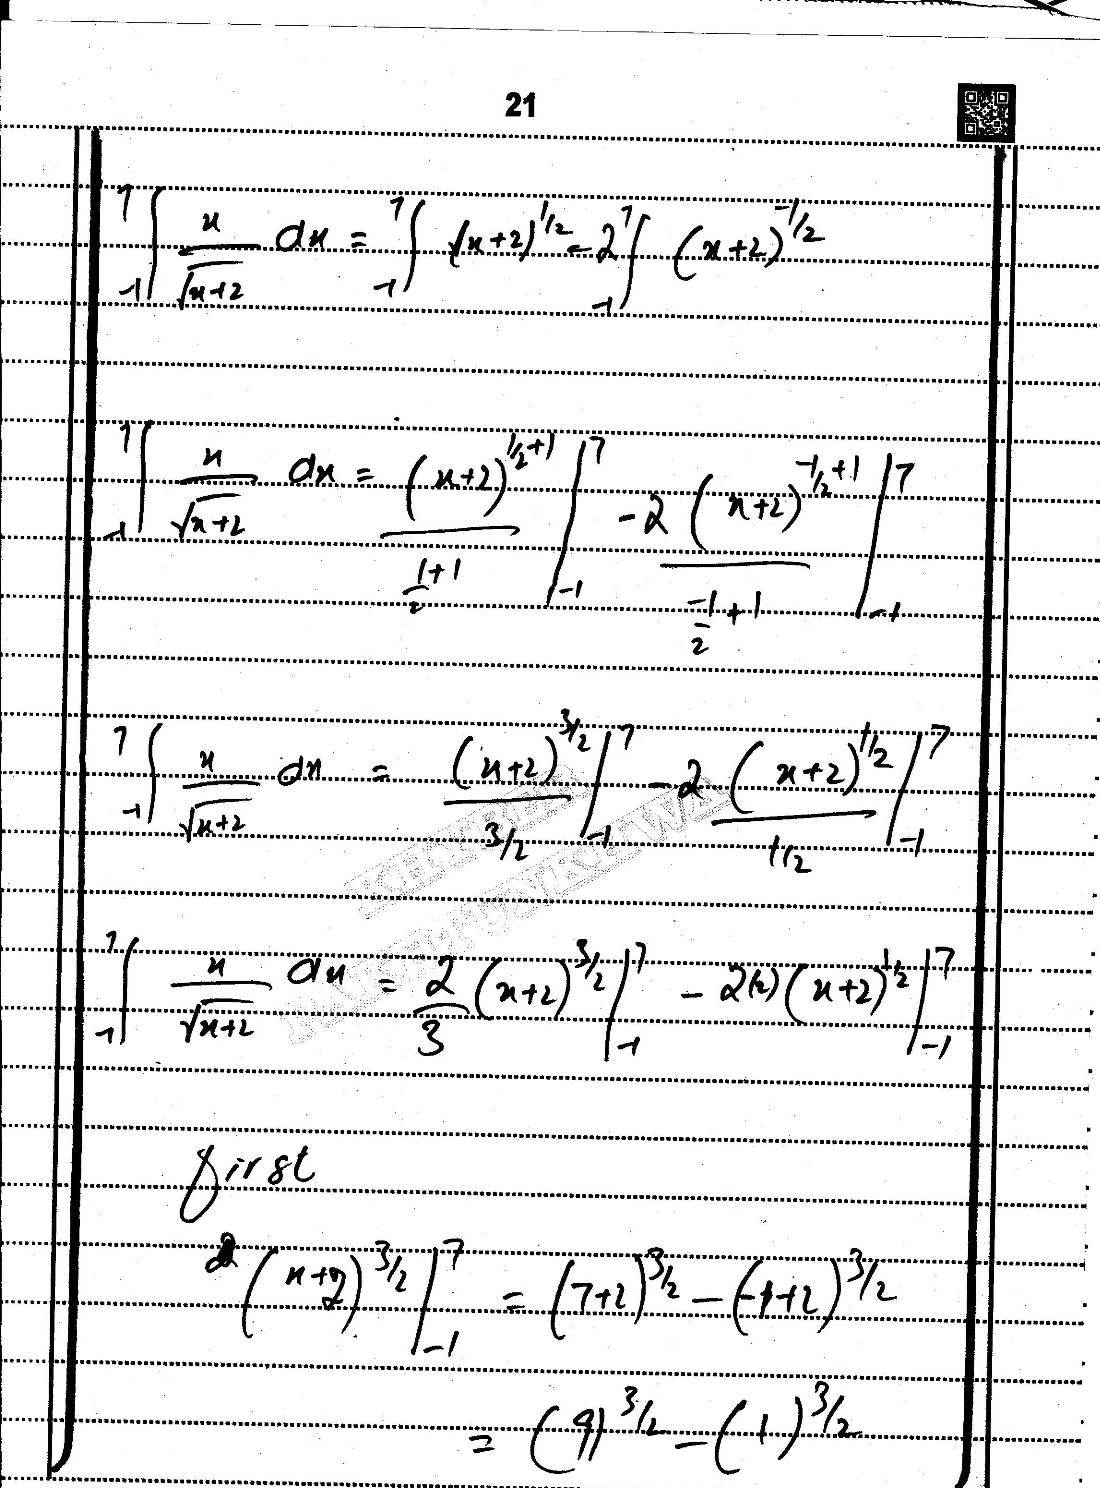 21
7∫-1 x/√(x+2) dx = 7∫-1 (x+2)^1/2 - 2 7∫-1 (x+2)^-1/2
7∫-1 x/√(x+2) dx = (x+2)^(1/2+1) / (1/2+1) |7 -1 - 2 (x+2)^(-1/2+1) / (-1/2+1) |7 -1
7∫-1 x/√(x+2) dx = (x+2)^3/2 / 3/2 |7 -1 - 2 (x+2)^1/2 / 1/2 |7 -1
7∫-1 x/√(x+2) dx = 2/3 (x+2)^3/2 |7 -1 - 2(2) (x+2)^1/2 |7 -1
first
(x+2)^3/2 |7 -1 = (7+2)^3/2 - (-1+2)^3/2
= (9)^3/2 - (1)^3/2